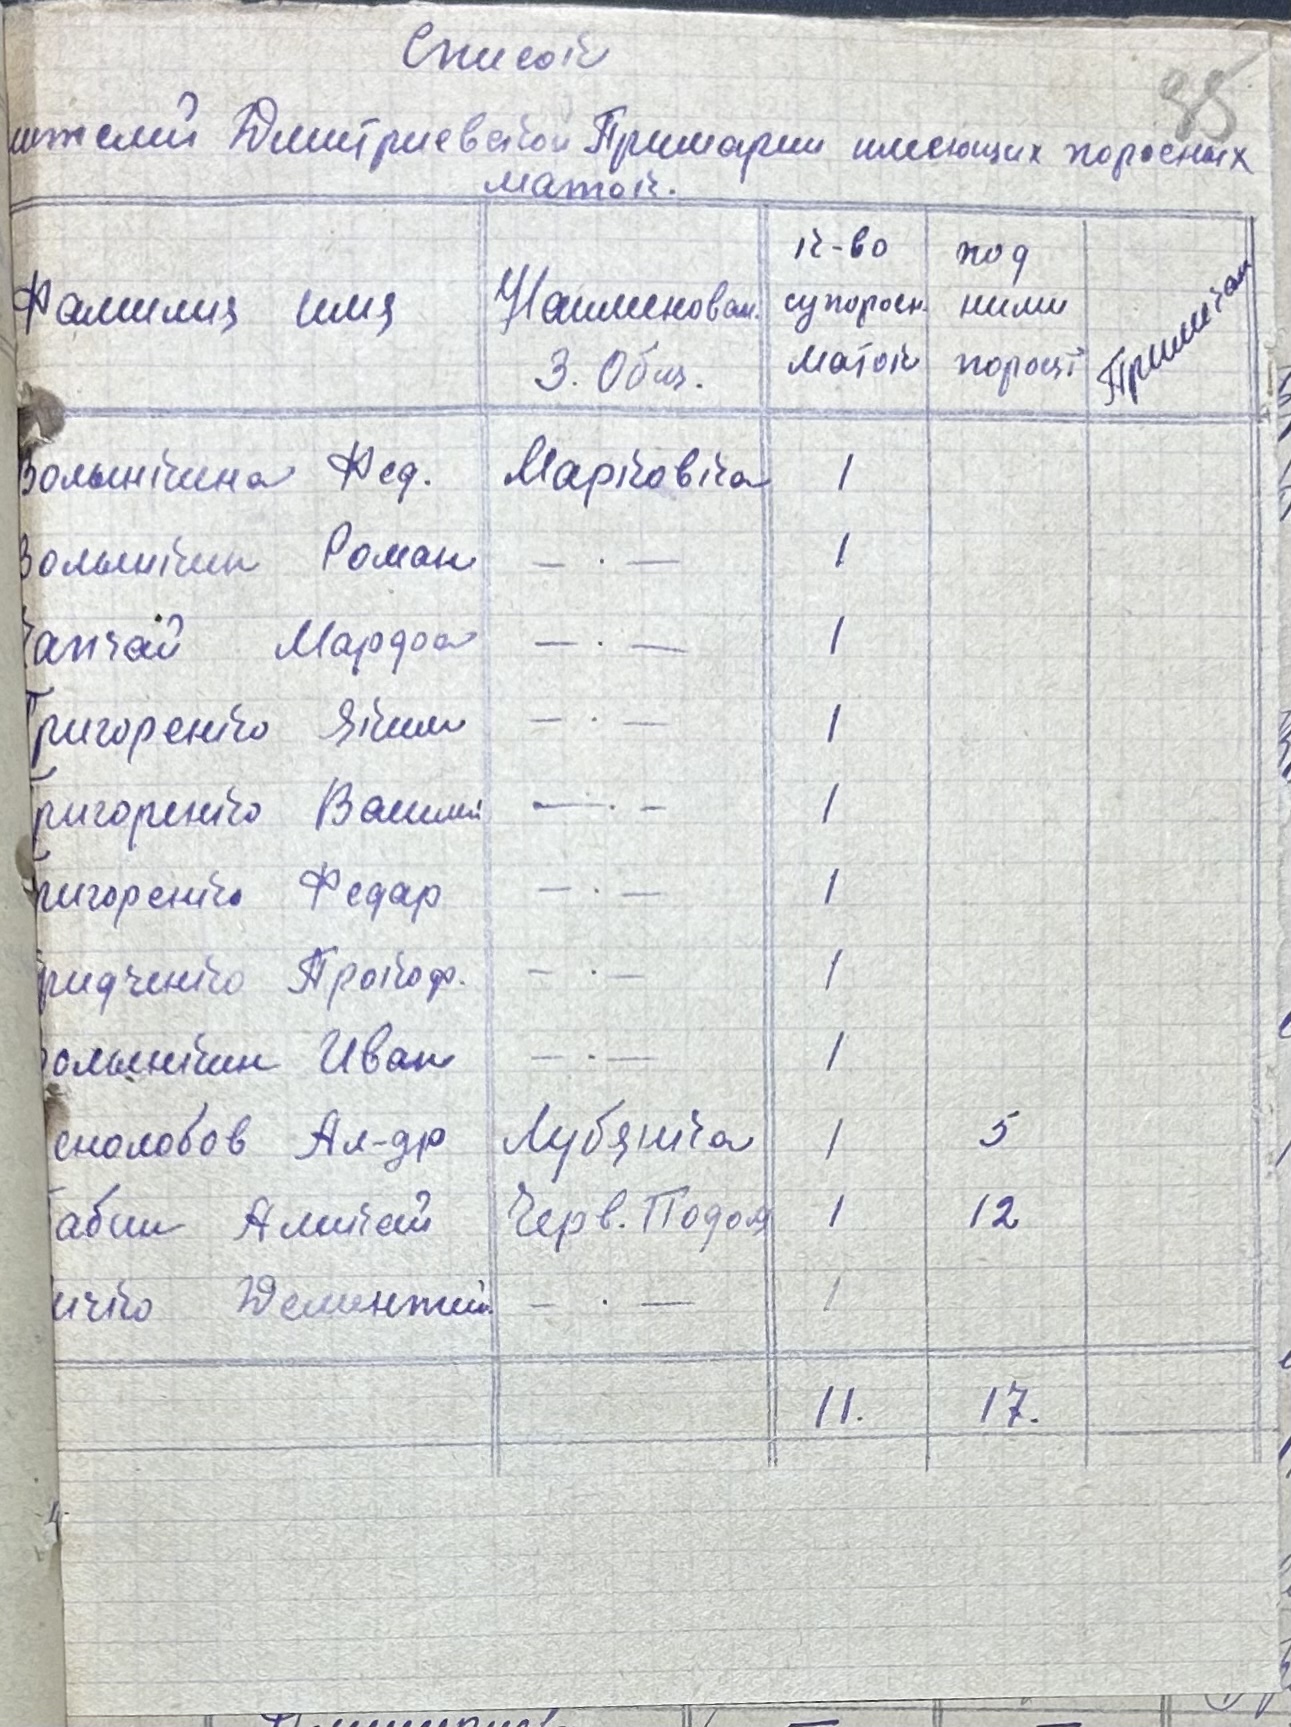 Список
85
жителей Дмитриевской Примарии имеющих поросных
маток.
Фамилия имя Наименован. З. Общ. к-во супоросн. маток под ними порост Примечан
Волынкина Фед. Марковка 1
Волынкин Роман — . — 1
Мардоа — . — 1
Григоренко Яким — . — 1
Григоренко Василий — . — 1
Григоренко Федар — . — 1
Гридченко Прокоф. — . — 1
Волынкин Иван — . — 1
снолобов Ал-др Лубянка 1 5
абин Алексей Черв. Подол 1 12
ичко Дементий — . — 1
11. 17.